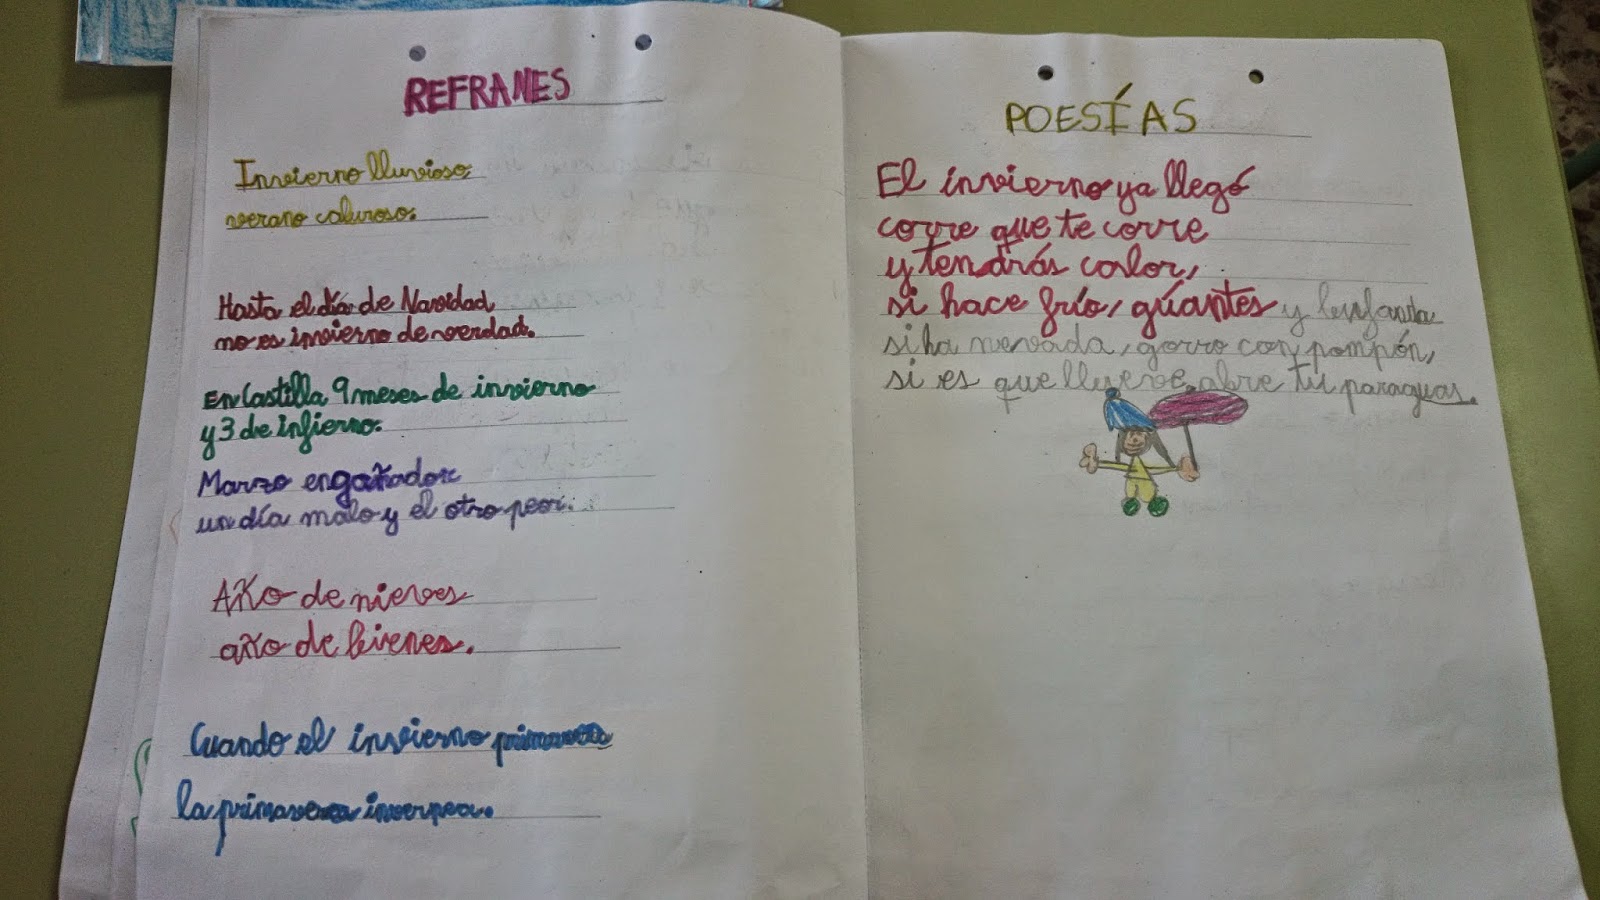 REFRANES
Invierno lluvioso,
verano caluroso.
Hasta el día de Navidad
no es invierno de verdad.
En Castilla 9 meses de invierno
y 3 de infierno.
Marzo engañador:
un día malo y el otro peor.
Año de nieves
año de bienes.
Cuando el invierno
la primavera
POESÍAS
El invierno ya llegó
corre que te corre
y tendrás calor,
si hace frío, gúantes y bufanda
si ha nevada, gorro con pompón,
si es que llueve abre tu paraguas.